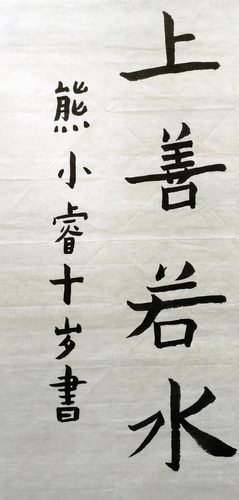 上善若水
熊小睿十岁書